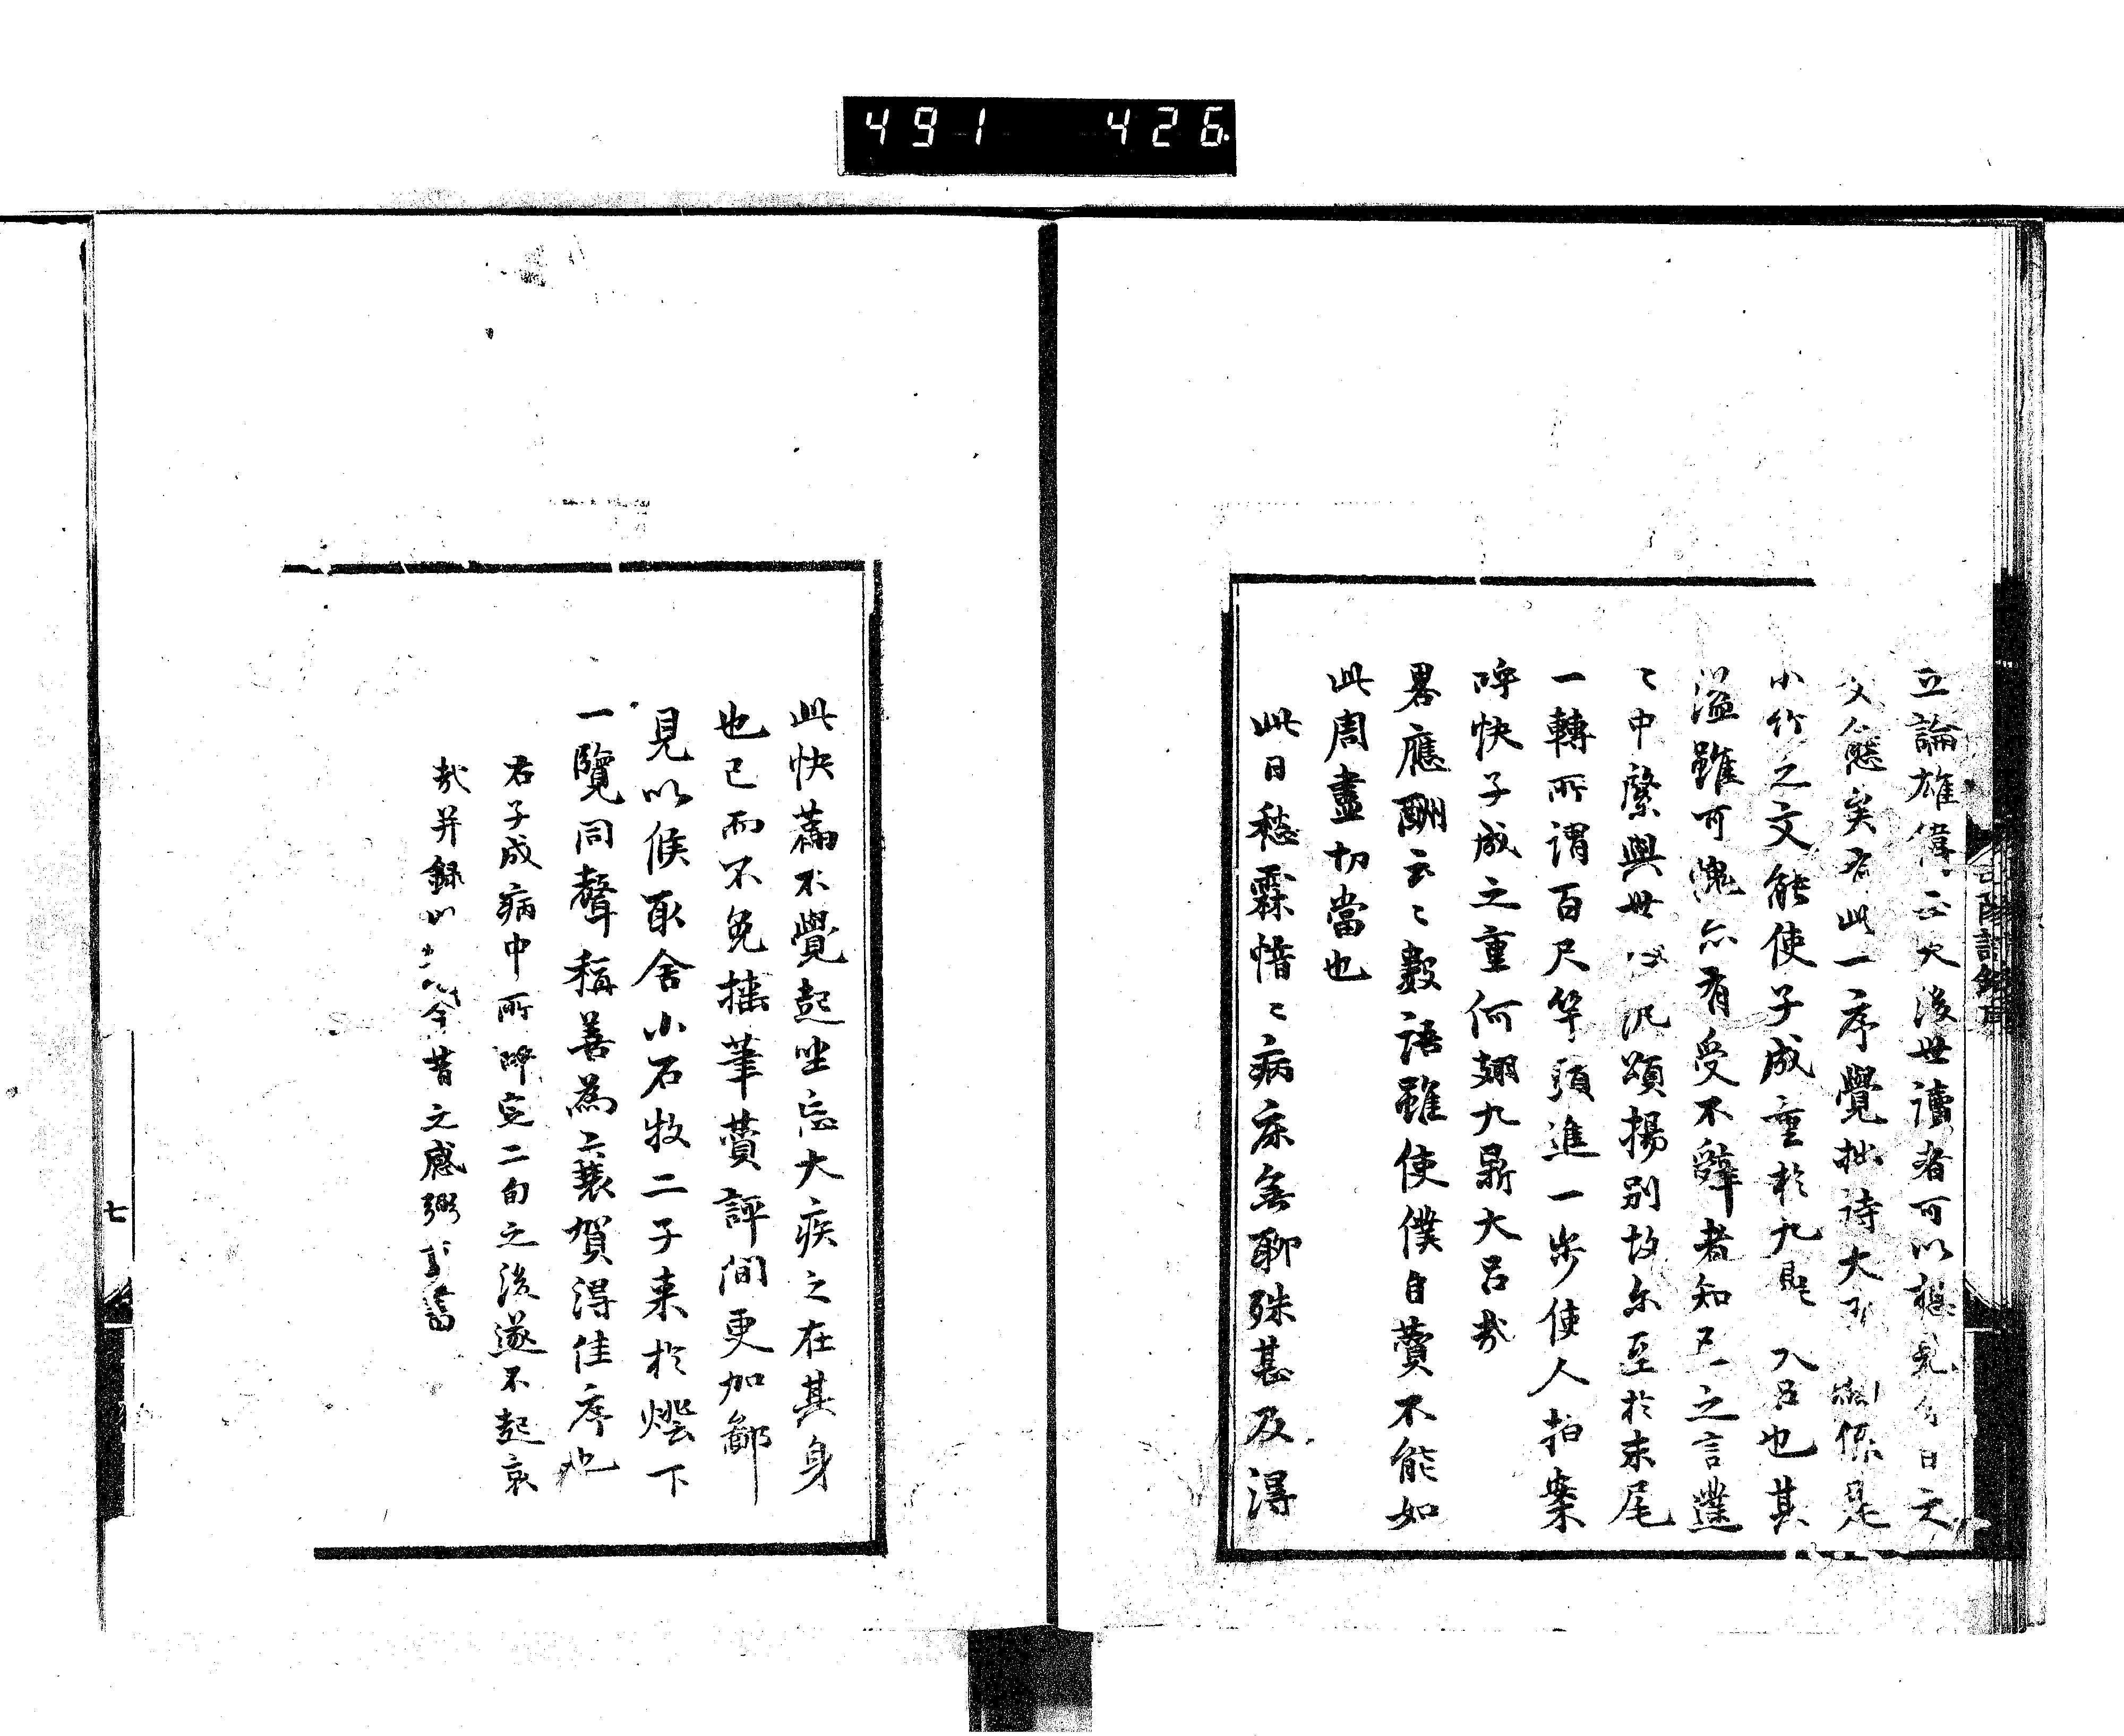 491 426
立論雄偉正大後世讀者可以想見今日之
文態矣君此一序覺拙詩大
小竹之文能使子成重於九 大呂也其
溢雖可愧亦有受不辭者知己之言蘧
〻中縻與世 汎頌揚別故尔至於末尾
一轉所謂百尺竿頭進一步使人拍案
呼快子成之重何翅九鼎大呂哉
畧應酬云〻數語雖使僕自贊不能如
此周盡切當也
此日愁霖愔〻病床無聊殊甚及得
此快藁不覺起坐忘大疾之在其身
也已而不免援筆贊評間更加鄙
見以候取舍小石牧二子来於燈下
一覽同聲稱善為云裴賀得佳序也
右子成病中所 定二旬之後遂不起哀
哉并録以 今昔之感弼 書
七